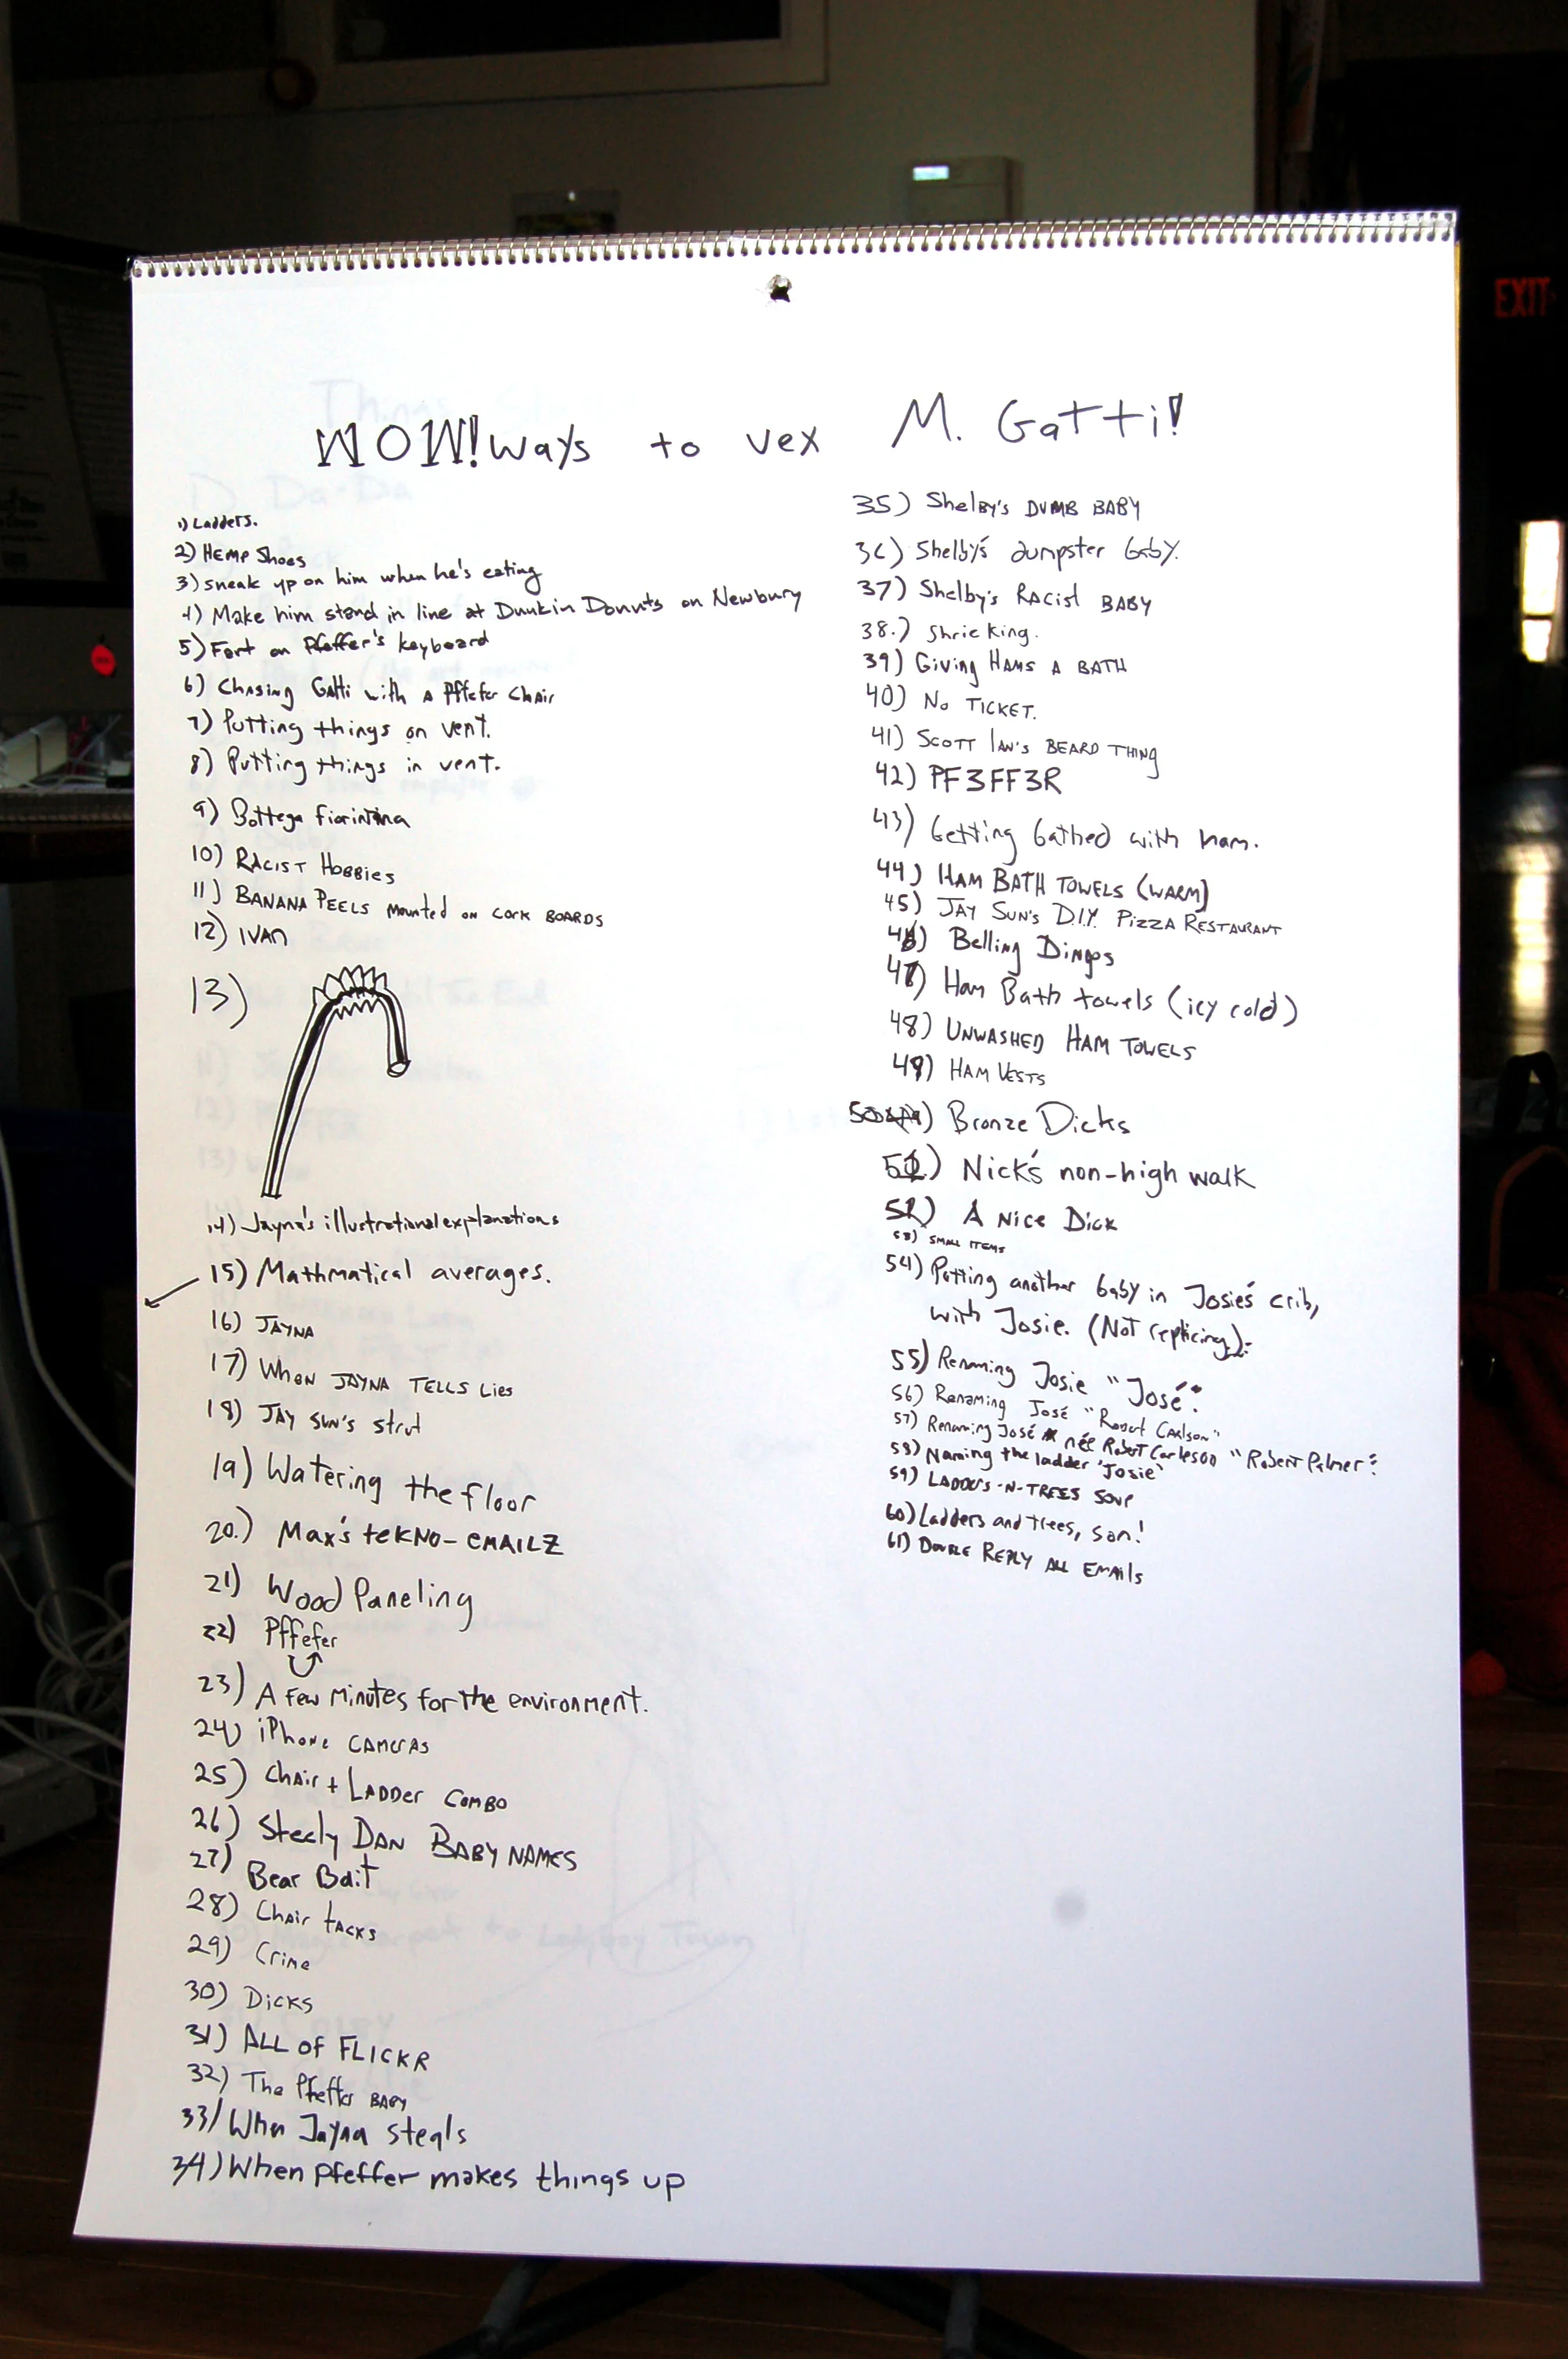 WOW! Ways to vex M. Gatti!
1) Ladders.
2) Hemp Shoes
3) sneak up on him when he's eating
4) Make him stand in line at Dunkin Donuts on Newbury
5) Fart on Pfeffer's keyboard
6) Chasing Gatti with a Pffefer Chair
7) Putting things on vent.
8) Putting things in vent.
9) Bottega fiorintina
10) RACIST HOBBIES
11) BANANA PEELS Mounted ON CORK BOARDS
12) IVAN
13)
14) Jayna's illustrational explanations
15) Mathmatical averages.
16) JAYNA
17) When JAYNA TELLS Lies
18) JAY SUN'S Strut
19) Watering the floor
20.) Max's teKNO-EMAILZ
21) Wood Paneling
22) Pffefer
23) A few Minutes for the environment.
24) iPhone CAMERAS
25) Chair + LADDer COMBO
26) Steely DAN BABY NAMES
27) Bear Bait
28) Chair tacks
29) Crime
30) Dicks
31) ALL OF FLICKR
32) The Pfeffer BABY
33) When Jayna steals
34) When Pfeffer makes things up
35) Shelby's DUMB BABY
36) Shelby's dumpster baby.
37) Shelby's Racist BABY
38.) Shrieking.
39) Giving HAMS A BATH
40) No TICKET.
41) SCOTT IAN'S BEARD THING
42) PF3FF3R
43) Getting bathed with ham.
44) HAM BATH TOWELS (WARM)
45) JAY SUN'S D.I.Y. PIZZA RESTAURANT
46) Belling Dingos
47) Ham Bath towels (icy cold)
48) UNWASHED HAM TOWELS
49) HAM VESTS
50) Bronze Dicks
51) Nick's non-high walk
52) A Nice Dick
53) SMALL ITEMS
54) Putting another baby in Josie's crib,
with Josie. (Not replicing).
55) Renaming Josie "José".
56) Renaming José "Robert Carlson"
57) Renaming José née Robert Carleson "Robert Palmer".
58) Naming the ladder 'Josie'
59) LADDERS-N-TREES SOUP
60) Ladders and trees, son!
61) DOUBLE REPLY ALL EMAILS
EXIT